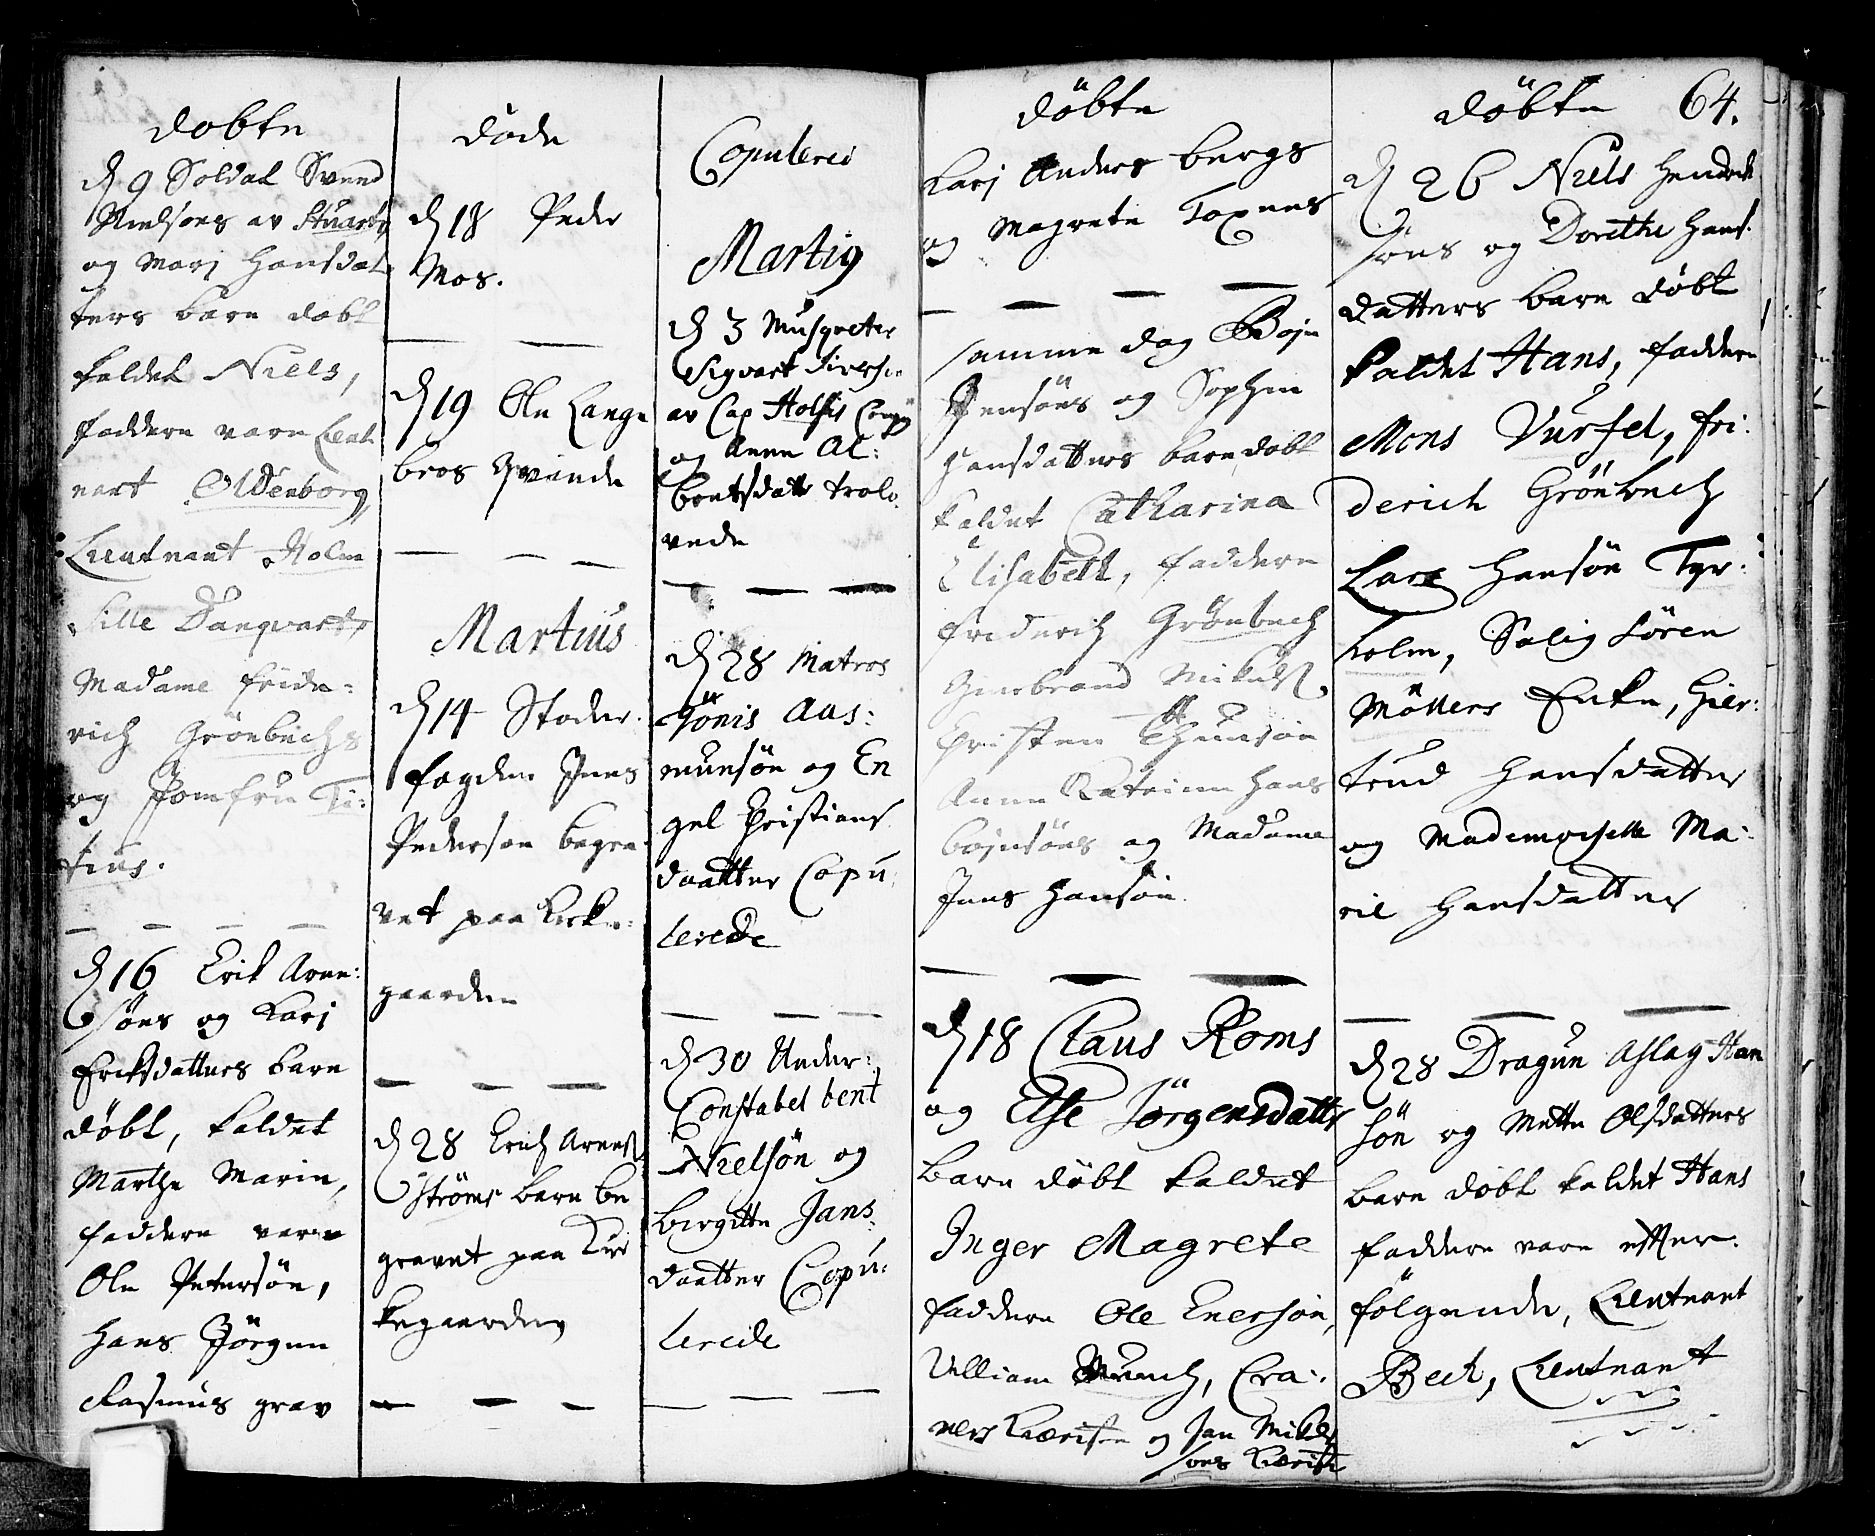 döbte
d 9 Soldat Svend
Nielsøns av Stuarts
og Marj Hansdat
ters barn døbt
kaldet Niels,
faddere vare Lieut
nant Oldenborg,
Lieutnant Holm
Sille Danqvarts
Madame fride=
rich Grönbechs
og Jomfru Ti:
tius.
d 16 Erik Arne:
søns og Karj
Eriksdatters barn
döbt, kaldet
Marthe Marin,
faddere vare
Ole Petersøn,
Hans Jörgen
Rasmus grav
döde
d 18 Peder
Mos.
d 19 Ole Lange
bros Qvinde
Martius
d 14 Stoder
fogden Jens
Pedersøn begra
vet paa Kirke=
gaarden
d 28 Erich Arnes
Ströms barn be
gravet paa Kir
kegaarden
Copulerei
Martig
d 3 Musqveter
Sigvart Siversøn
av Cap Holsis Comp
og Anne Al:
bretsdatter trolo
vede
d 28 Matros
Tönis Aas:
munsön og En
gel Christians
daatter Copu
lerede
d 30 Under:
Constabel bent
Nielsön og
Birgitte Jans
daatter Copu:
lerede
döbte
Karj Anders bergs
og Magrete Toxnes
samme dag Bojn
Jensöns og Sophia
Hansdatters barn döbt
kaldet Catharina
Elisabeth, faddere
friderich Grönbech
Gunbrand Mikels
Christen Thunsøn
Anne Katrine Hans
bojnsöns og Madame
Jens Hansön.
d 18 Claus Roms
og Else Jörgensdatter
barn döbt kaldet
Inger Magrete
faddere Ole Enersøn,
Villiam Munch, Cra:
ners Kæriste og Jan Mikels
søns Kæriste
döbte 64.
d 26 Niels Hendrich
söns og Dorethe Hans
datters barn döbt
kaldet Hans, faddere
Mons Vursel, fri:
derich Grönbech
Lars Hansön Tyr:
holm, Salig Sören
Möllers Enke, Gier:
trud Hansdatter
og Mademoiselle Ma:
ril Hansdatter
d 28 Dragun Aslag Han
sön og Mette Olsdatters
barn döbt kaldet Hans
faddere vare effter:
fölgende, Lieutnant
Bech, Lieutnant